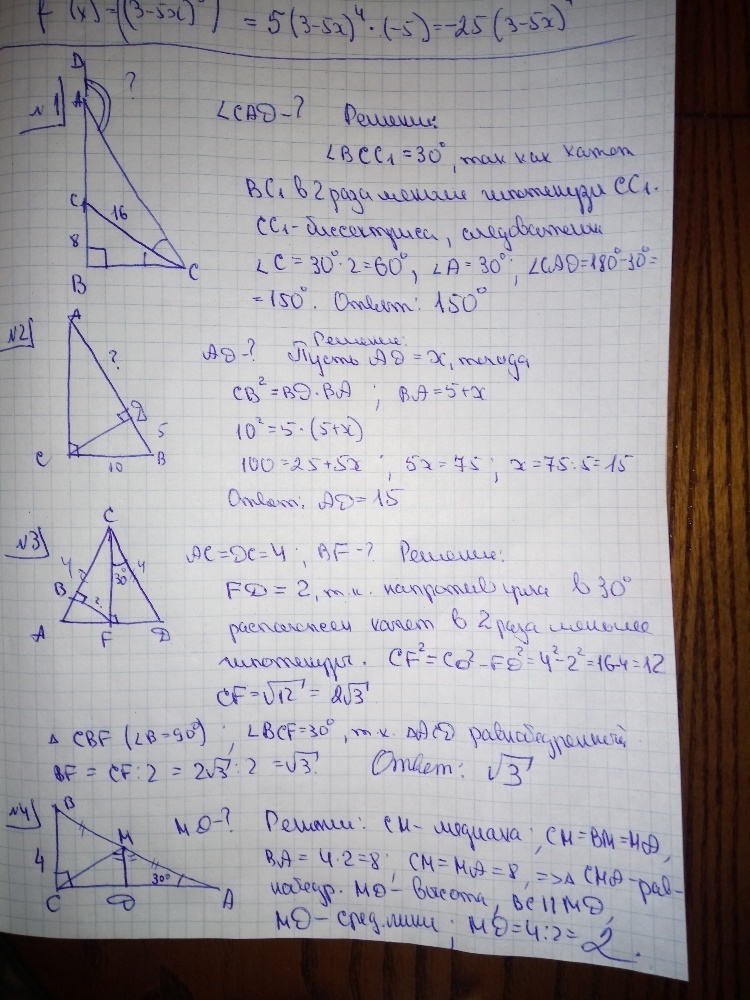 f'(x) = ((3-5x)⁵)' = 5(3-5x)⁴·(-5) = -25(3-5x)⁴
№1
D
?
A
C1
16
8
B
C
∠CAD-? Решение:
∠BCC₁=30°, так как катет
BC₁ в 2 раза меньше гипотенузы CC₁.
CC₁-биссектриса, следовательно
∠C=30°·2=60°, ∠A=30°; ∠CAD=180°-30°=
=150°. Ответ: 150°
№2
A
?
D
5
C
10
B
AD-? Решение:
Пусть AD=x, тогда
CB²=BD·BA ; BA=5+x
10²=5·(5+x)
100=25+5x ; 5x=75 ; x=75:5=15
Ответ: AD=15
№3
C
4
4
30°
B
?
A
F
D
AC=DC=4 ; BF-? Решение:
FD=2, т.к. напротив угла в 30°
расположен катет в 2 раза меньшее
гипотенузы. CF²=CD²-FD²=4²-2²=16-4=12
CF=√12=2√3
△CBF (∠B=90°) ; ∠BCF=30°, т.к. △ACD равнобедренный
BF=CF:2=2√3:2=√3. Ответ: √3
№4
B
M
4
30°
C
D
A
MD-? Решение: CM-медиана ; CM=BM=MA,
BA=4·2=8; CM=MA=8, =>△CMA-рав-
нобедр. MD-высота, BC||MD,
MD-сред.линия ; MD=4:2=2.